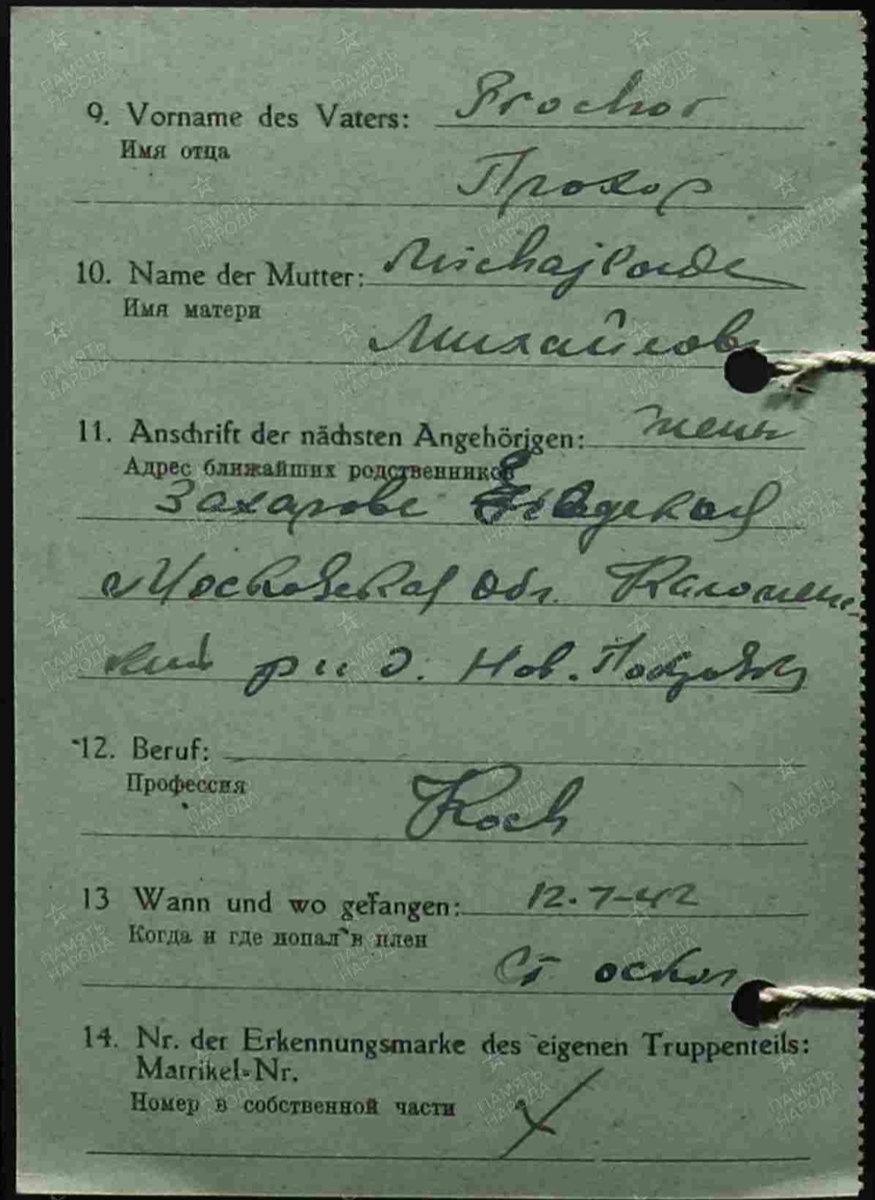 9. Vorname des Vaters: Prochor
Имя отца
Прохор
10. Name der Mutter:
Имя матери
Михайлов
11. Anschrift der nächsten Angehörigen: жены
Адрес ближайших родственников
Захарове
Московская обл. Каломен
ский р-н д. Нов.
12. Beruf:
Профессия
Koch
13 Wann und wo gefangen: 12.7-42
Когда и где попал в плен
Ст оскол
14. Nr. der Erkennungsmarke des eigenen Truppenteils:
Matrikel-Nr.
Номер в собственной части